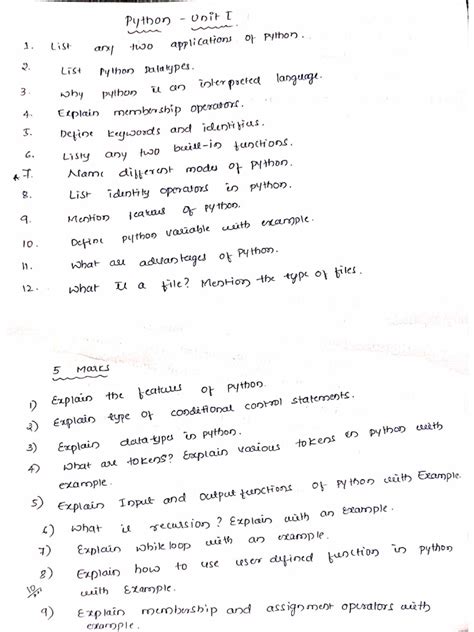 Python - Unit I
1. List any two applications of Python.
2. List Python Datatypes.
3. Why python is an interpreted language.
4. Explain membership operators.
5. Define keywords and identifies.
6. Listy any two built-in functions.
7. Name different modes of Python.
8. List identity operators in python.
9. Mention features of Python.
10. Define python variable with example.
11. What are advantages of Python.
12. What Is a file? Mention the type of files.
5 Marks
1) Explain the features of Python.
2) Explain type of conditional control statements.
3) Explain data types in python.
4) What are tokens? Explain various tokens in python with
example.
5) Explain Input and output functions of Python with Example.
6) What is recursion? Explain with an Example.
7) Explain while loop with an example.
8) Explain how to use user defined function in python
with Example.
9) Explain membership and assignment operators with
example.